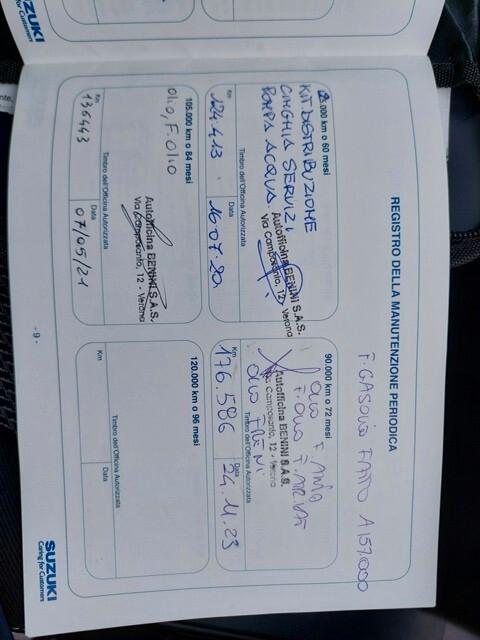 SUZUKI
Caring for Customers
REGISTRO DELLA MANUTENZIONE PERIODICA
F. GASOLIO FATTO A 157.000
.000 km o 60 mesi
KIT DISTRIBUZIONE
CINGHIA SERVIZI
POMPA ACQUA
Autofficina BENINI S.A.S.
Via Camposanto, 12 - Verona
Timbro dell'Officina Autorizzata
Km
124.413
Data
16.07.20
90.000 km o 72 mesi
OLIO F.
F. OLIO F.
OLIO FRENI
Autofficina BENINI S.A.S.
Via Camposanto, 12 - Verona
Timbro dell'Officina Autorizzata
Km
176.586
Data
24.11.23
105.000 km o 84 mesi
OLIO, F. OLIO
Autofficina BENINI S.A.S.
Via Camposanto, 12 - Verona
Timbro dell'Officina Autorizzata
Km
136443
Data
07/05/21
120.000 km o 96 mesi
Timbro dell'Officina Autorizzata
Km
Data
- 9 -
SUZUKI
Caring for Customers